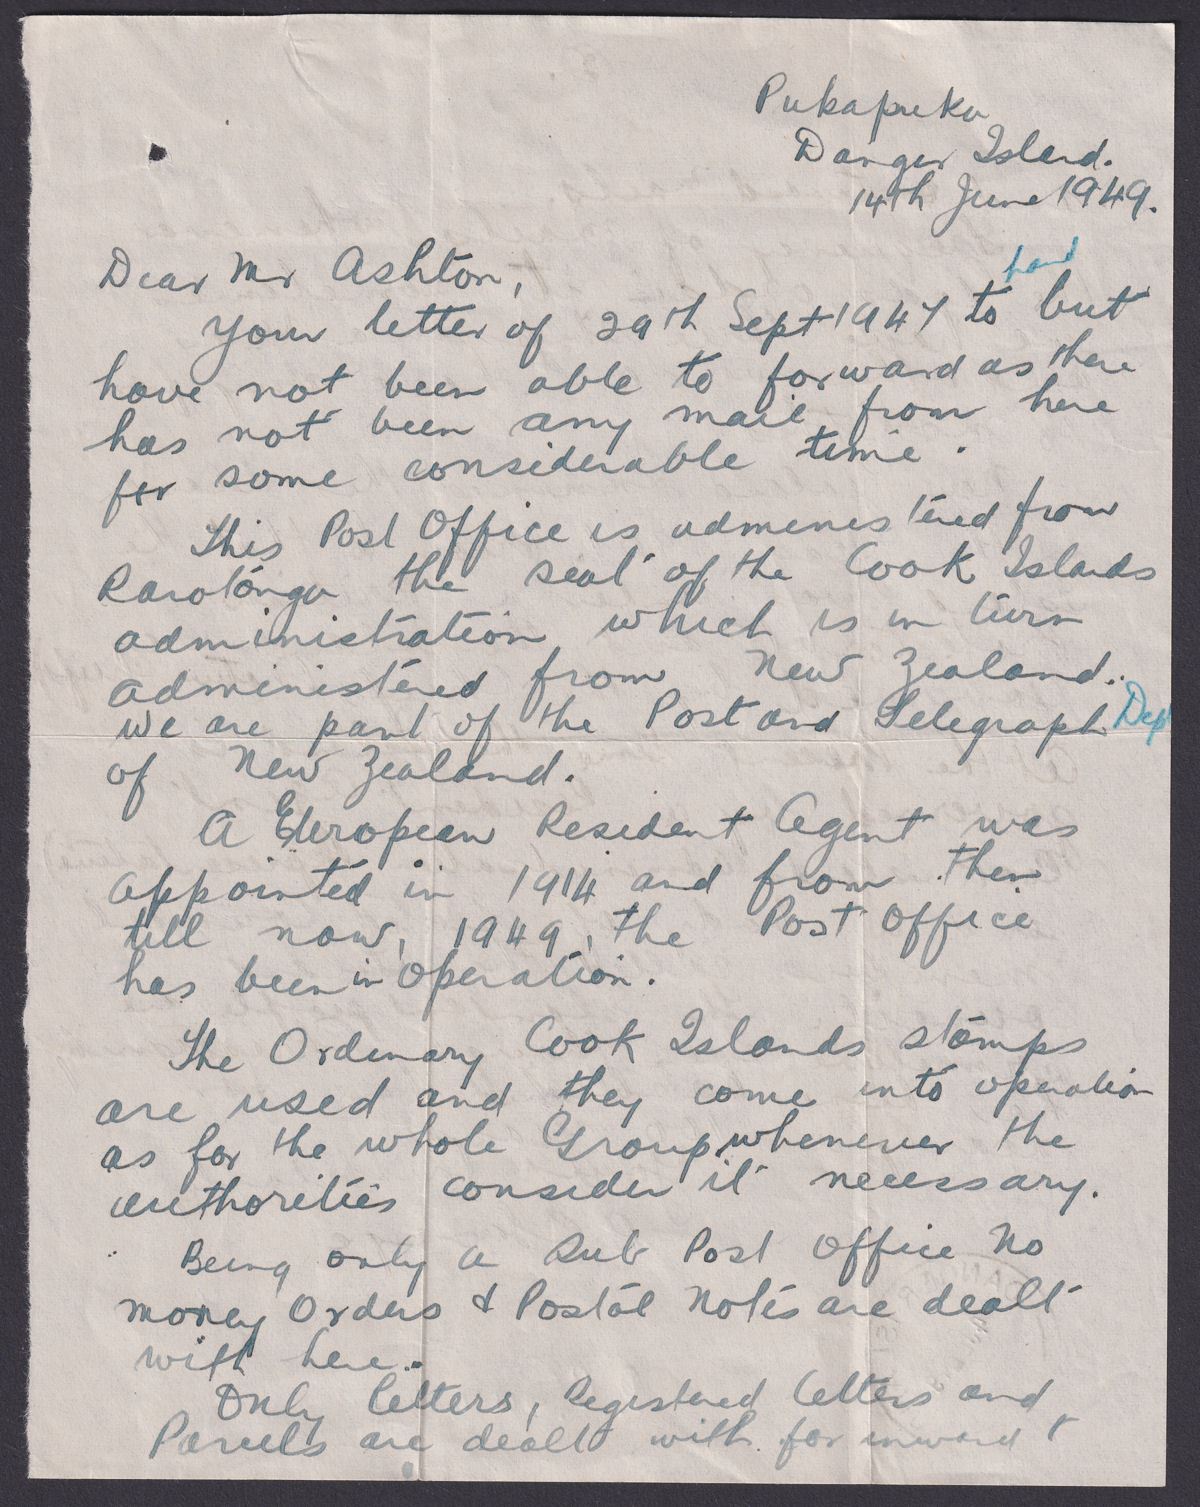 Pukapuka
Danger Island.
14th June 1949.
Dear Mr Ashton,
hand
Your letter of 29th Sept 1947 to but
have not been able to forward as there
has not been any mail from here
for some considerable time.
This Post Office is admenistered from
Rarotonga the seat of the Cook Islands
administration which is in turn
administered from New Zealand.
We are part of the Post and Telegraph Dept
of New Zealand.
A European Resident Agent was
appointed in 1914 and from then
till now, 1949, the Post Office
has been in operation.
The Ordinary Cook Islands stamps
are used and they come into operation
as for the whole Group whenever the
authorities consider it necessary.
Being only a Sub Post Office No
money Orders & Postal Notes are dealt
with here.
Only letters, Registered letters and
Parcels are dealt with for inward &